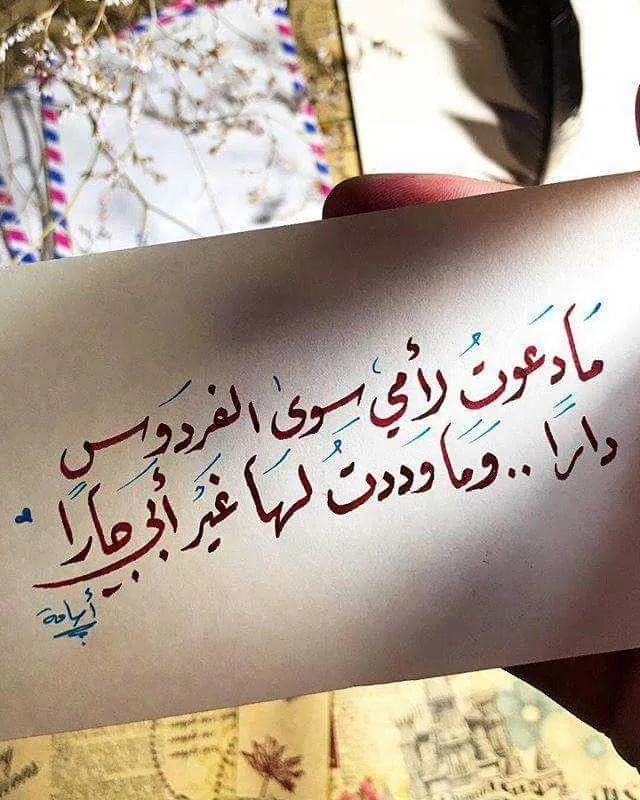 مَا دَعَوتُ لأُمي سِوىٰ الفردَوس
دارًا .. وَمَا وَددتُ لهَا غَيرُ أبي جَارًا